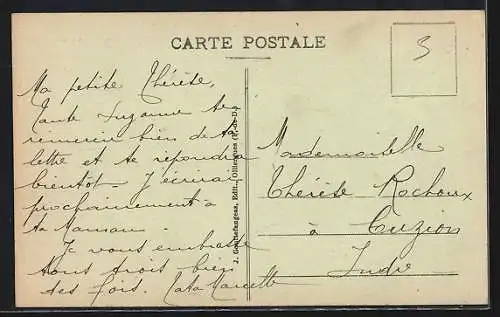 CARTE POSTALE
3
Ma petite Thérèse,
Tante Suzanne te
remercie bien de ta
lettre et te répondra
bientôt - J'écrirai
prochainement à
ta Maman.
Je vous embrasse
tous trois bien
des fois. Tata Marcelle
J. Edit., Ollierguess (P.-de-D.)
Mademoiselle
Thérèse Rochoux
à Cuzion
Indre